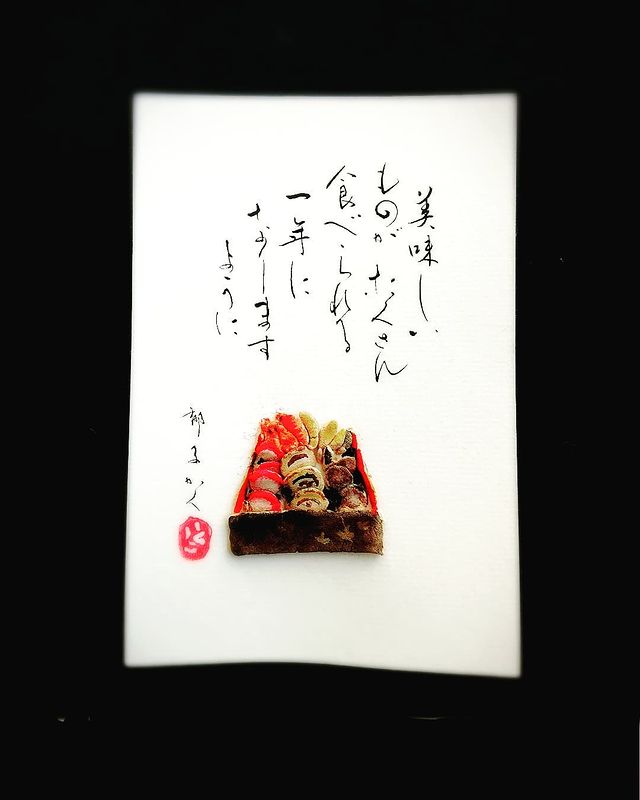 美味しい
ものがたくさん
食べられる
一年に
なりします
ように